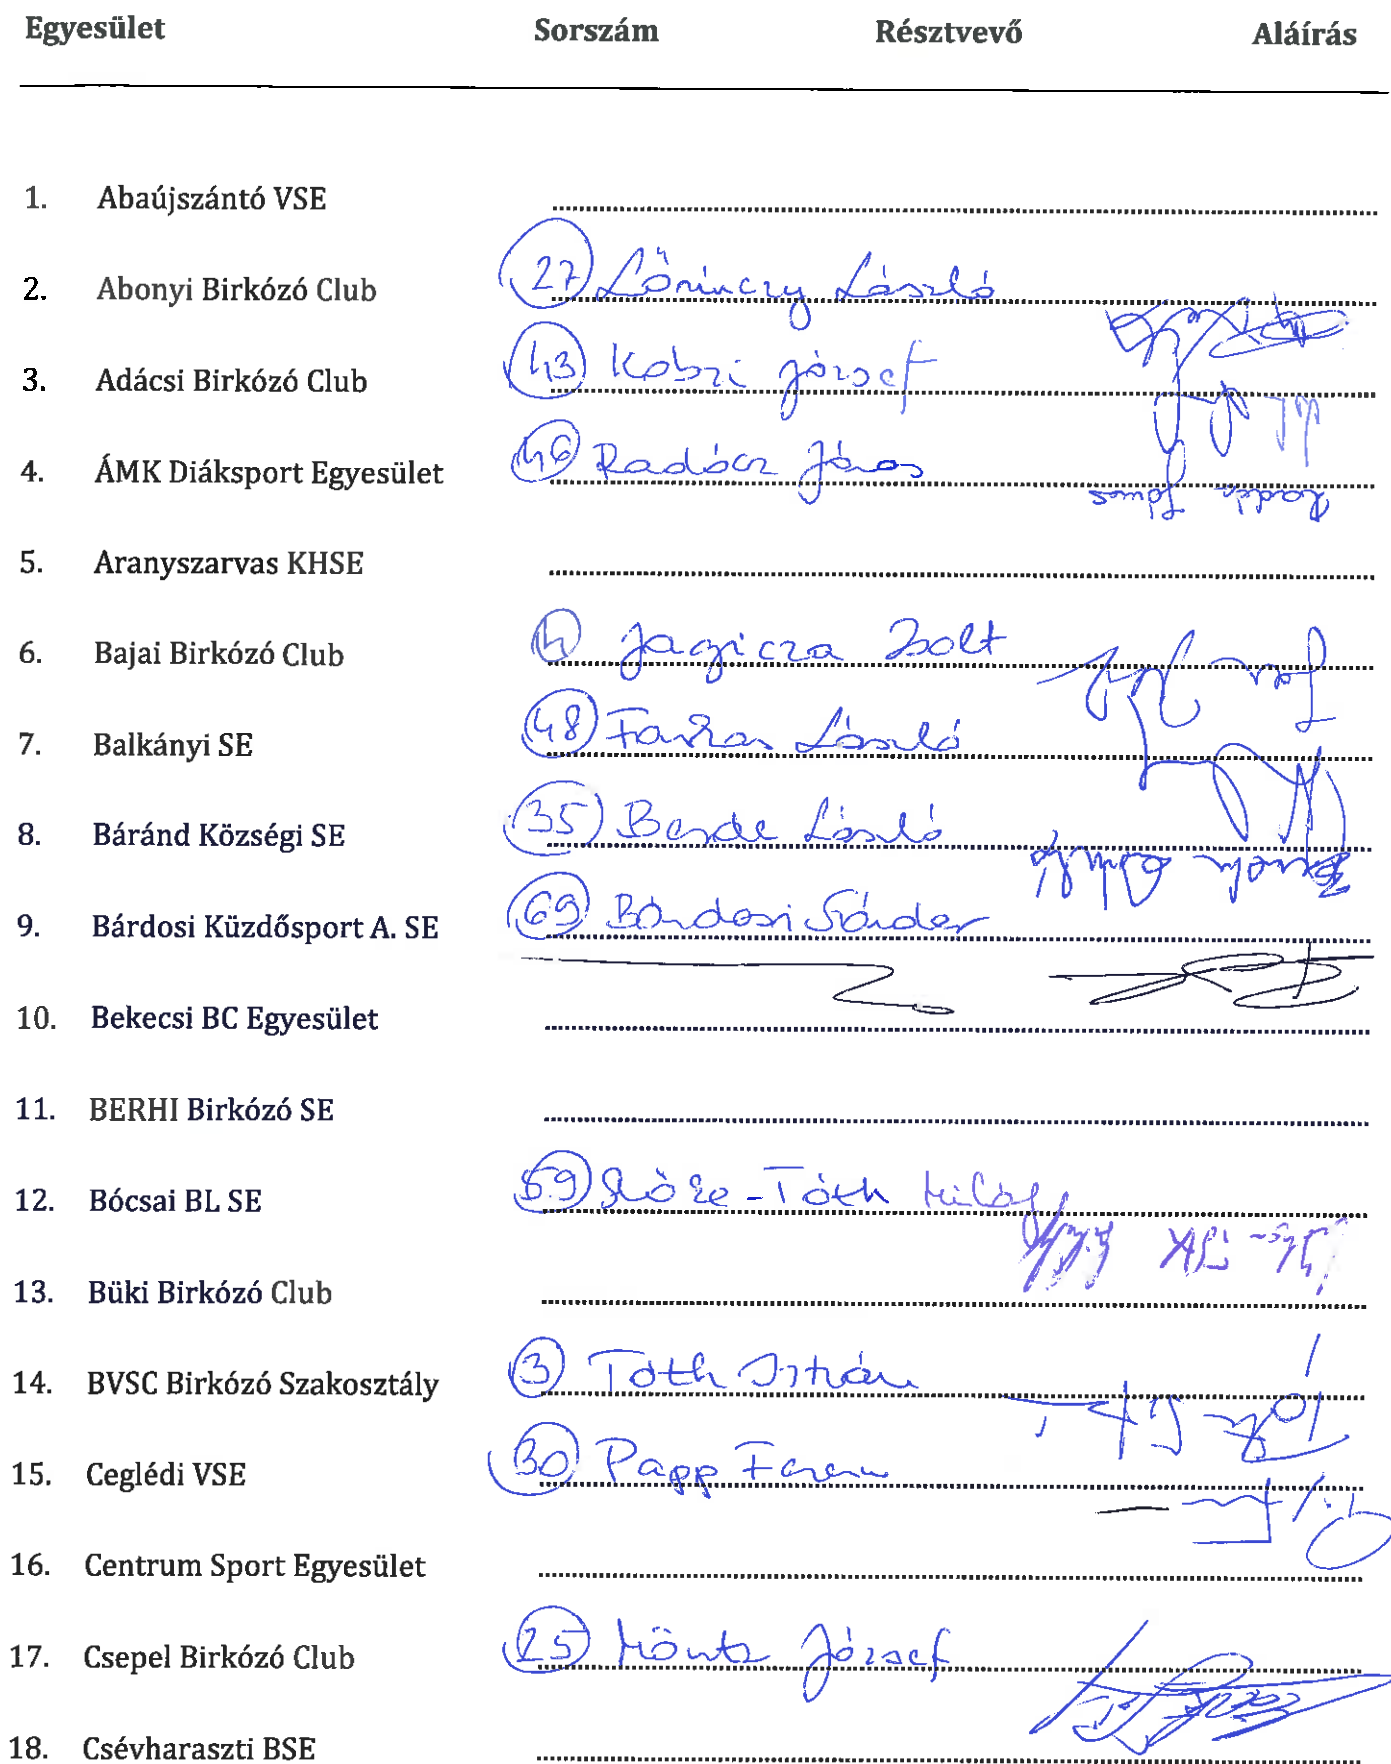 Egyesület Sorszám Résztvevő Aláírás
1. Abaújszántó VSE
2. Abonyi Birkózó Club 27 Lőrinczy László
3. Adácsi Birkózó Club 43 Kobzi József
4. ÁMK Diáksport Egyesület 46 Radócz János
5. Aranyszarvas KHSE
6. Bajai Birkózó Club 4 Jagicza Zsolt
7. Balkányi SE 48 Farkas László
8. Báránd Községi SE 35 Bende László
9. Bárdosi Küzdősport A. SE 69 Bárdosi Sándor
10. Bekecsi BC Egyesület
11. BERHI Birkózó SE
12. Bócsai BL SE 59 Tóth
13. Büki Birkózó Club
14. BVSC Birkózó Szakosztály 3 Tóth István
15. Ceglédi VSE 30 Papp Ferenc
16. Centrum Sport Egyesület
17. Csepel Birkózó Club 25 József
18. Csévharaszti BSE